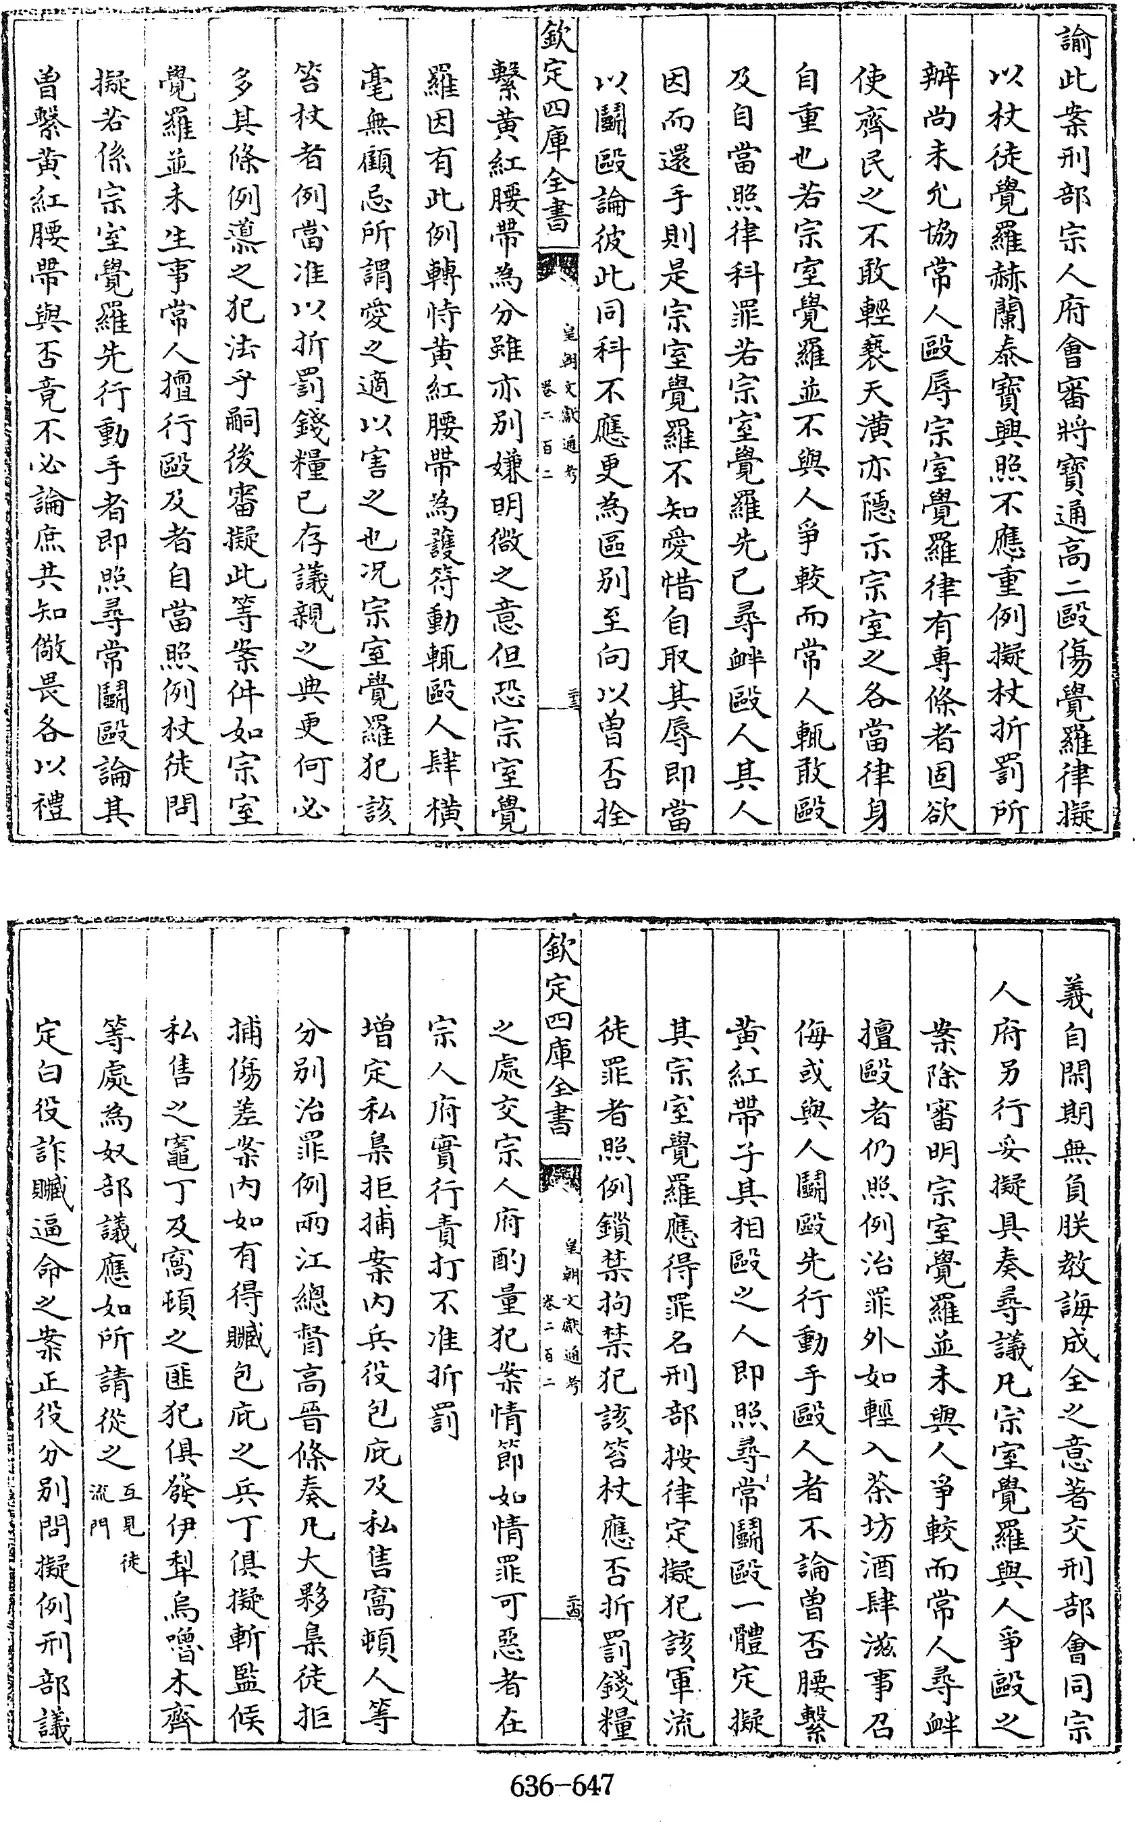 諭此案刑部宗人府會審將寳通高二毆傷覺羅律擬
以杖徒覺羅赫蘭泰寳興照不應重例擬杖折罰所
辦尚未允協常人毆辱宗室覺羅律有專條者固欲
使齊民之不敢輕褻天潢亦隱示宗室之各當律身
自重也若宗室覺羅並不與人爭較而常人輒敢毆
及自當照律科罪若宗室覺羅先已尋衅毆人其人
因而還手則是宗室覺羅不知愛惜自取其辱即當
以鬭毆論彼此同科不應更為區別至向以曾否拴
欽定四庫全書
皇朝文獻通考
卷二百二
三十三
繫黄紅腰帶為分雖亦别嫌明微之意但恐宗室覺
羅因有此例轉恃黄紅腰帶為護符動輒毆人肆橫
毫無顧忌所謂愛之適以害之也况宗室覺羅犯該
笞杖者例當准以折罰錢糧已存議親之典更何必
多其條例導之犯法乎嗣後審擬此等案件如宗室
覺羅並未生事常人擅行毆及者自當照例杖徒問
擬若係宗室覺羅先行動手者即照尋常鬭毆論其
曾繫黄紅腰帶與否竟不必論庶共知儆畏各以禮
義自閑期無負朕教誨成全之意著交刑部會同宗
人府另行妥擬具奏尋議凡宗室覺羅與人爭毆之
案除審明宗室覺羅並未與人爭較而常人尋衅
擅毆者仍照例治罪外如輕入茶坊酒肆滋事召
侮或與人鬭毆先行動手毆人者不論曾否腰繫
黄紅帶子其相毆之人即照尋常鬭毆一體定擬
其宗室覺羅應得罪名刑部按律定擬犯該軍流
徒罪者照例鎖禁拘禁犯該笞杖應否折罰錢糧
欽定四庫全書
皇朝文獻通考
卷二百二
三十四
之處交宗人府酌量犯案情節如情罪可惡者在
宗人府實行責打不准折罰
增定私梟拒捕案内兵役包庇及私售窩頓人等
分别治罪例兩江總督高晉條奏凡大夥梟徒拒
捕傷差案内如有得贓包庇之兵丁俱擬斬監候
私售之竈丁及窩頓之匪犯俱發伊犁烏嚕木齊
等處為奴部議應如所請從之互見徒
流門
定白役詐贓逼命之案正役分别問擬例刑部議
636-647